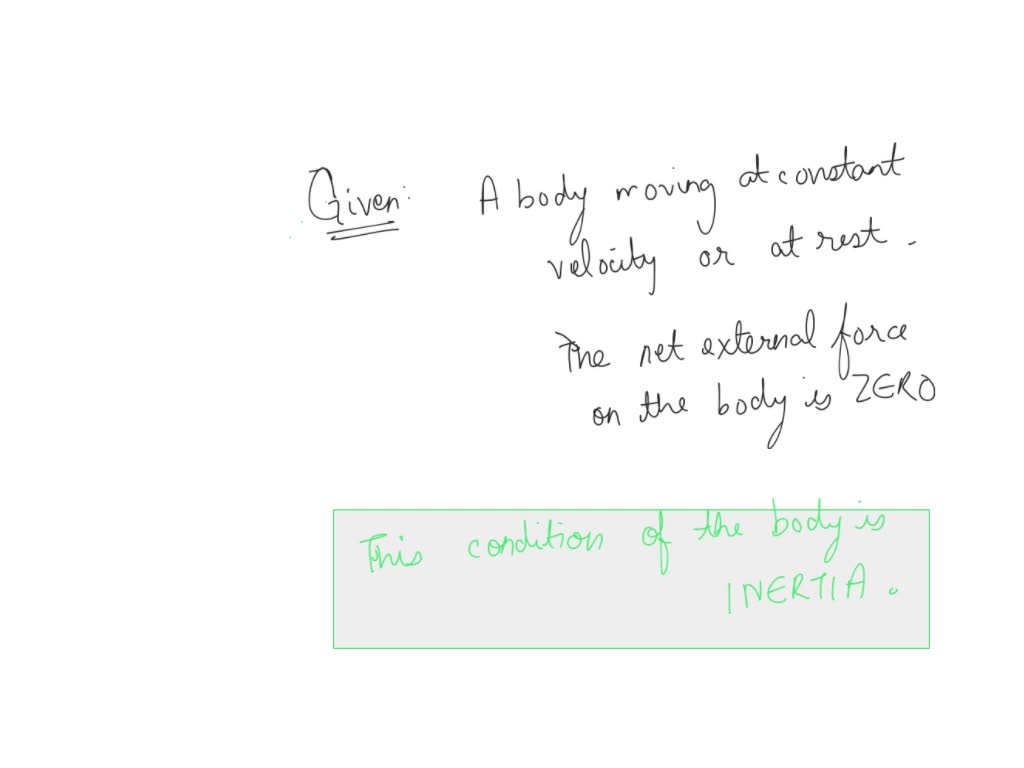 Given: A body moving at constant
velocity or at rest.
The net external force
on the body is ZERO
This condition of the body is
INERTIA.